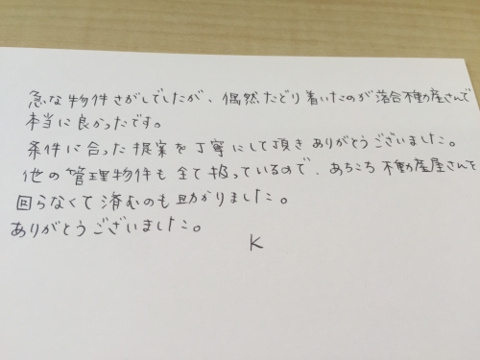 急な物件さがしでしたが、偶然たどり着いたのが落合不動産さんで
本当に良かったです。
条件に合った提案を丁寧にして頂きありがとうございました。
他の管理物件も全て扱っているので、あちこち不動産屋さんを
回らなくて済むのも助かりました。
ありがとうございました。
K